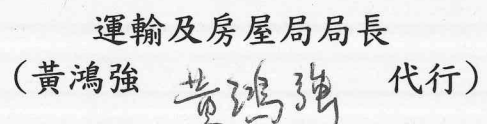 運輸及房屋局局長
(黃鴻強 黃鴻強 代行)